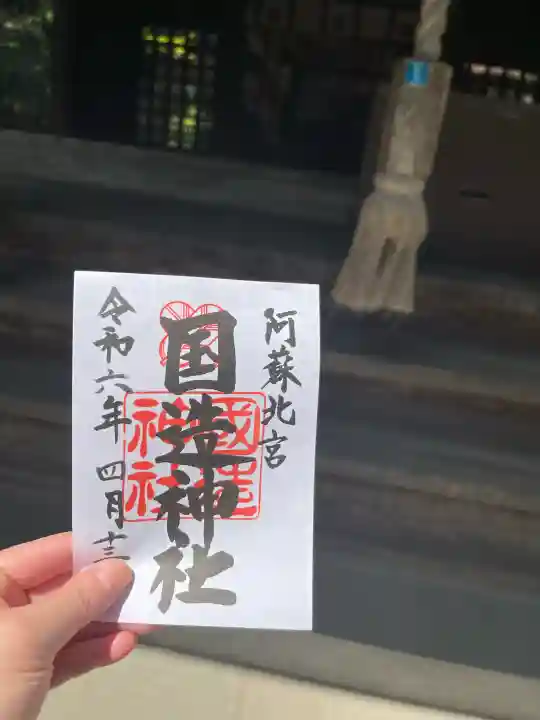 阿蘇北宮
国造神社
國造
神社
令和六年 四月十三